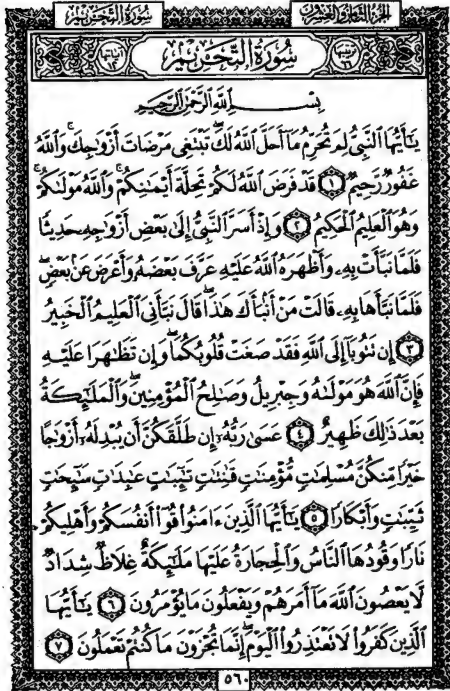 الجزء الثامن والعشرون
سورة التحريم
سُورَةُ التَّحْرِيمِ
بِسْمِ اللَّهِ الرَّحْمَٰنِ الرَّحِيمِ
يَٰٓأَيُّهَا ٱلنَّبِىُّ لِمَ تُحَرِّمُ مَآ أَحَلَّ ٱللَّهُ لَكَ ۖ تَبْتَغِى مَرْضَاتَ أَزْوَٰجِكَ ۚ وَٱللَّهُ
غَفُورٌ رَّحِيمٌ ١ قَدْ فَرَضَ ٱللَّهُ لَكُمْ تَحِلَّةَ أَيْمَٰنِكُمْ ۚ وَٱللَّهُ مَوْلَىٰكُمْ ۖ
وَهُوَ ٱلْعَلِيمُ ٱلْحَكِيمُ ٢ وَإِذْ أَسَرَّ ٱلنَّبِىُّ إِلَىٰ بَعْضِ أَزْوَٰجِهِۦ حَدِيثًا
فَلَمَّا نَبَّأَتْ بِهِۦ وَأَظْهَرَهُ ٱللَّهُ عَلَيْهِ عَرَّفَ بَعْضَهُۥ وَأَعْرَضَ عَنۢ بَعْضٍ ۖ
فَلَمَّا نَبَّأَهَا بِهِۦ قَالَتْ مَنْ أَنۢبَأَكَ هَٰذَا ۖ قَالَ نَبَّأَنِىَ ٱلْعَلِيمُ ٱلْخَبِيرُ
٣ إِن تَتُوبَآ إِلَى ٱللَّهِ فَقَدْ صَغَتْ قُلُوبُكُمَا ۖ وَإِن تَظَٰهَرَا عَلَيْهِ
فَإِنَّ ٱللَّهَ هُوَ مَوْلَىٰهُ وَجِبْرِيلُ وَصَٰلِحُ ٱلْمُؤْمِنِينَ ۖ وَٱلْمَلَٰٓئِكَةُ
بَعْدَ ذَٰلِكَ ظَهِيرٌ ٤ عَسَىٰ رَبُّهُۥٓ إِن طَلَّقَكُنَّ أَن يُبْدِلَهُۥٓ أَزْوَٰجًا
خَيْرًا مِّنكُنَّ مُسْلِمَٰتٍ مُّؤْمِنَٰتٍ قَٰنِتَٰتٍ تَٰٓئِبَٰتٍ عَٰبِدَٰتٍ سَٰٓئِحَٰتٍ
ثَيِّبَٰتٍ وَأَبْكَارًا ٥ يَٰٓأَيُّهَا ٱلَّذِينَ ءَامَنُوا۟ قُوٓا۟ أَنفُسَكُمْ وَأَهْلِيكُمْ
نَارًا وَقُودُهَا ٱلنَّاسُ وَٱلْحِجَارَةُ عَلَيْهَا مَلَٰٓئِكَةٌ غِلَاظٌ شِدَادٌ
لَّا يَعْصُونَ ٱللَّهَ مَآ أَمَرَهُمْ وَيَفْعَلُونَ مَا يُؤْمَرُونَ ٦ يَٰٓأَيُّهَا
ٱلَّذِينَ كَفَرُوا۟ لَا تَعْتَذِرُوا۟ ٱلْيَوْمَ ۖ إِنَّمَا تُجْزَوْنَ مَا كُنتُمْ تَعْمَلُونَ ٧
٥٦٠